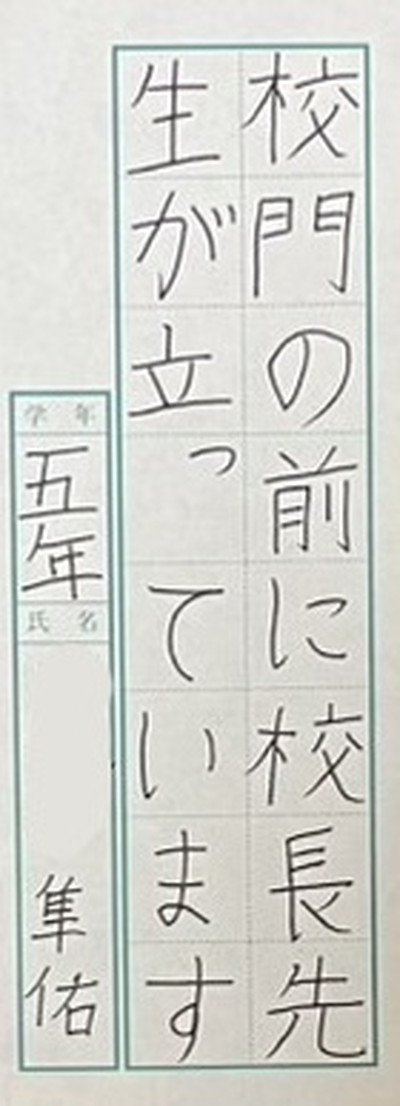 校門の前に校長先
生が立っています
学年
五年
氏名
隼佑